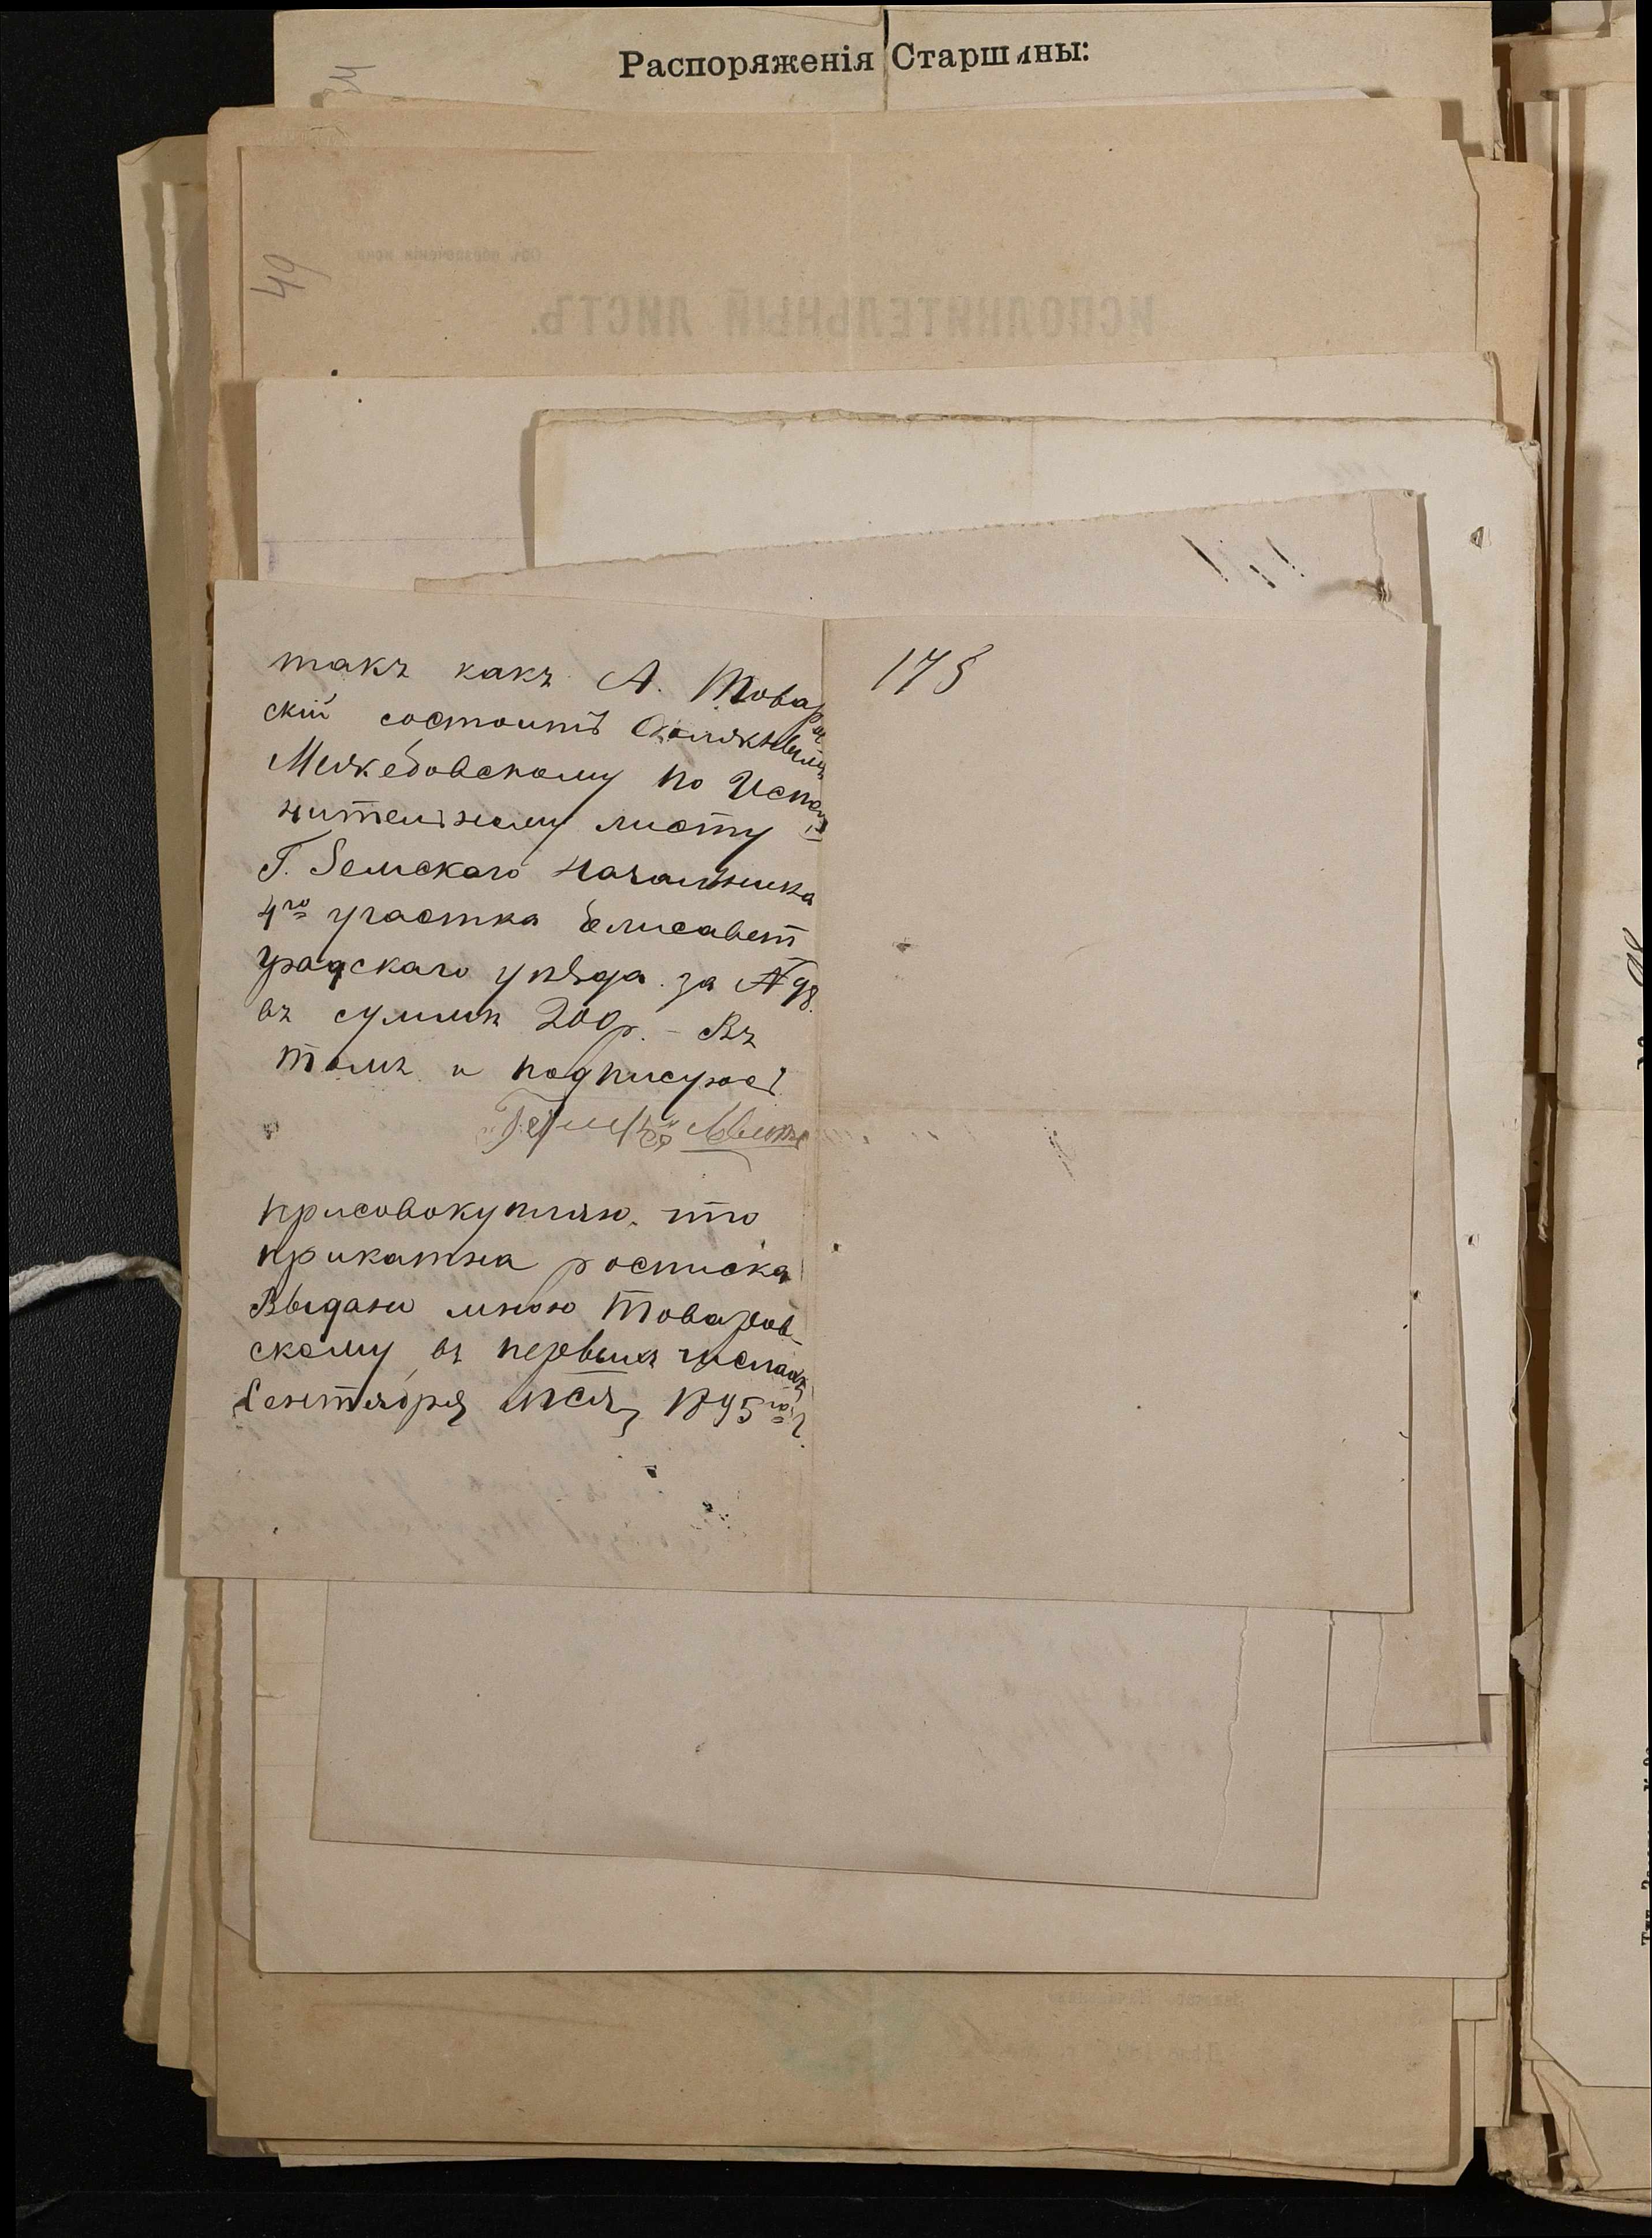 Распоряженія Старшины:
49
ИСПОЛНИТЕЛЬНЫЙ ЛИСТЪ.
175
такъ какъ А. Товаров
скій состоитъ должнымъ
Межебовскому по Испол
нительному листу
Г. Земскаго Начальника
4го участка Елисавет
градскаго уѣзда за № 98.
въ суммѣ 200 р. – Въ
томъ и подписуюсь
присовокупляю, что
росписка
Выдана мною Товаров
скому въ первыхъ числахъ
Сентября мѣся, 1895го г.